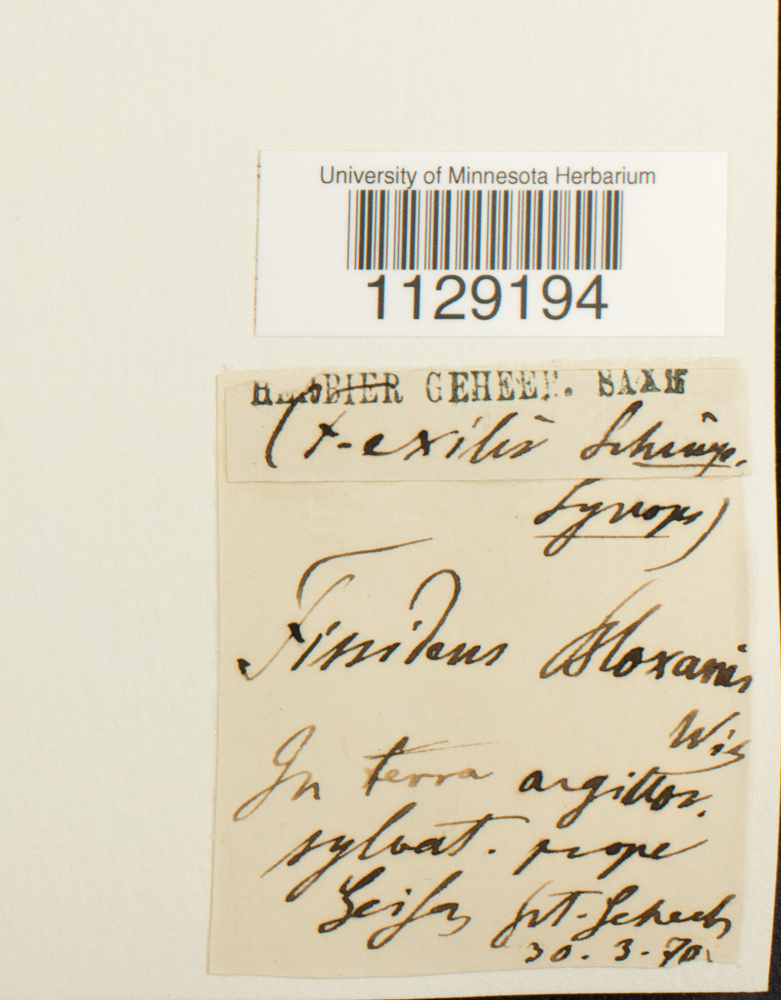 University of Minnesota Herbarium
1129194
HERBIER GEHEEB. SAXE
(F. exilis Schimp.
Synops)
Fissidens Bloxami
Wils
In terra argillos.
sylvat. prope
Geisa
30. 3. 70